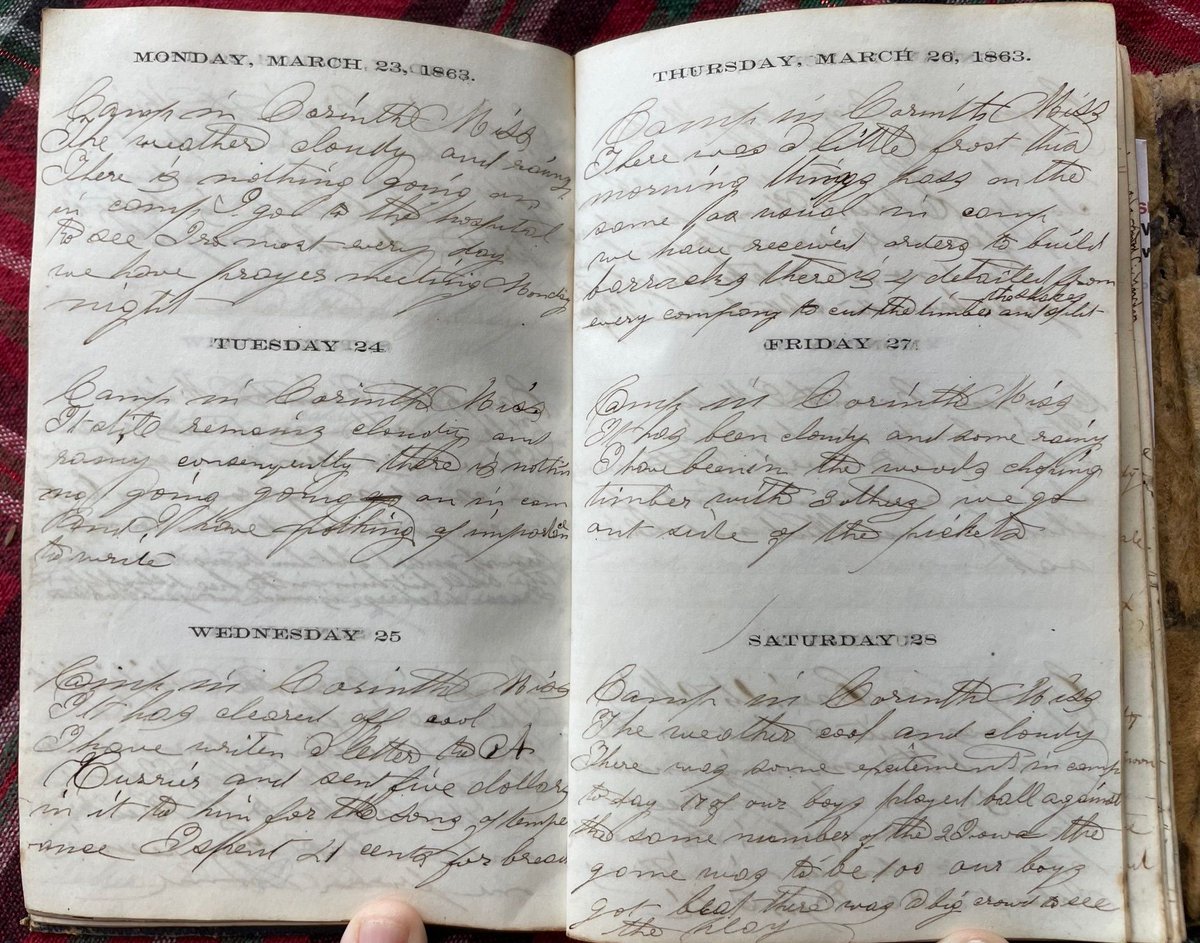 MONDAY, MARCH 23, 1863.
Camp in Corinth Miss
The weather cloudy and rainy
There is nothing going on
in camp I go to the hospital
to see Ira most every day
we have prayer meeting Monday
night
TUESDAY 24
Camp in Corinth Miss
It still remains cloudy and
rainy consequently there is nothin
ng going going on in cam
and I have nothing of importan
to write
WEDNESDAY 25
Camp in Corinth Miss
It has cleared off cool
I have writen a letter to A
Currier and sent five dollars
in it to him for the song of tempe
rance I spent 21 cents for bread
THURSDAY, MARCH 26, 1863.
Camp in Corinth Miss
There was a little frost this
morning things pass on the
same as usual in camp
we have received orders to build
barracks there is 4 detailed from
every company to cut the timber and split
the shakes
FRIDAY 27
Camp in Corinth Miss
It has been cloudy and some rainy
I have been in the woods choping
timber with 3 others we go
out side of the pickets
SATURDAY 28
Camp in Corinth Miss
The weather cool and cloudy
There was some excitement in camp
to day 17 of our boys played ball against
the same number of the 2 Iowa the
game was to be 100 our boys
got beat there was a big crowd to see
the play